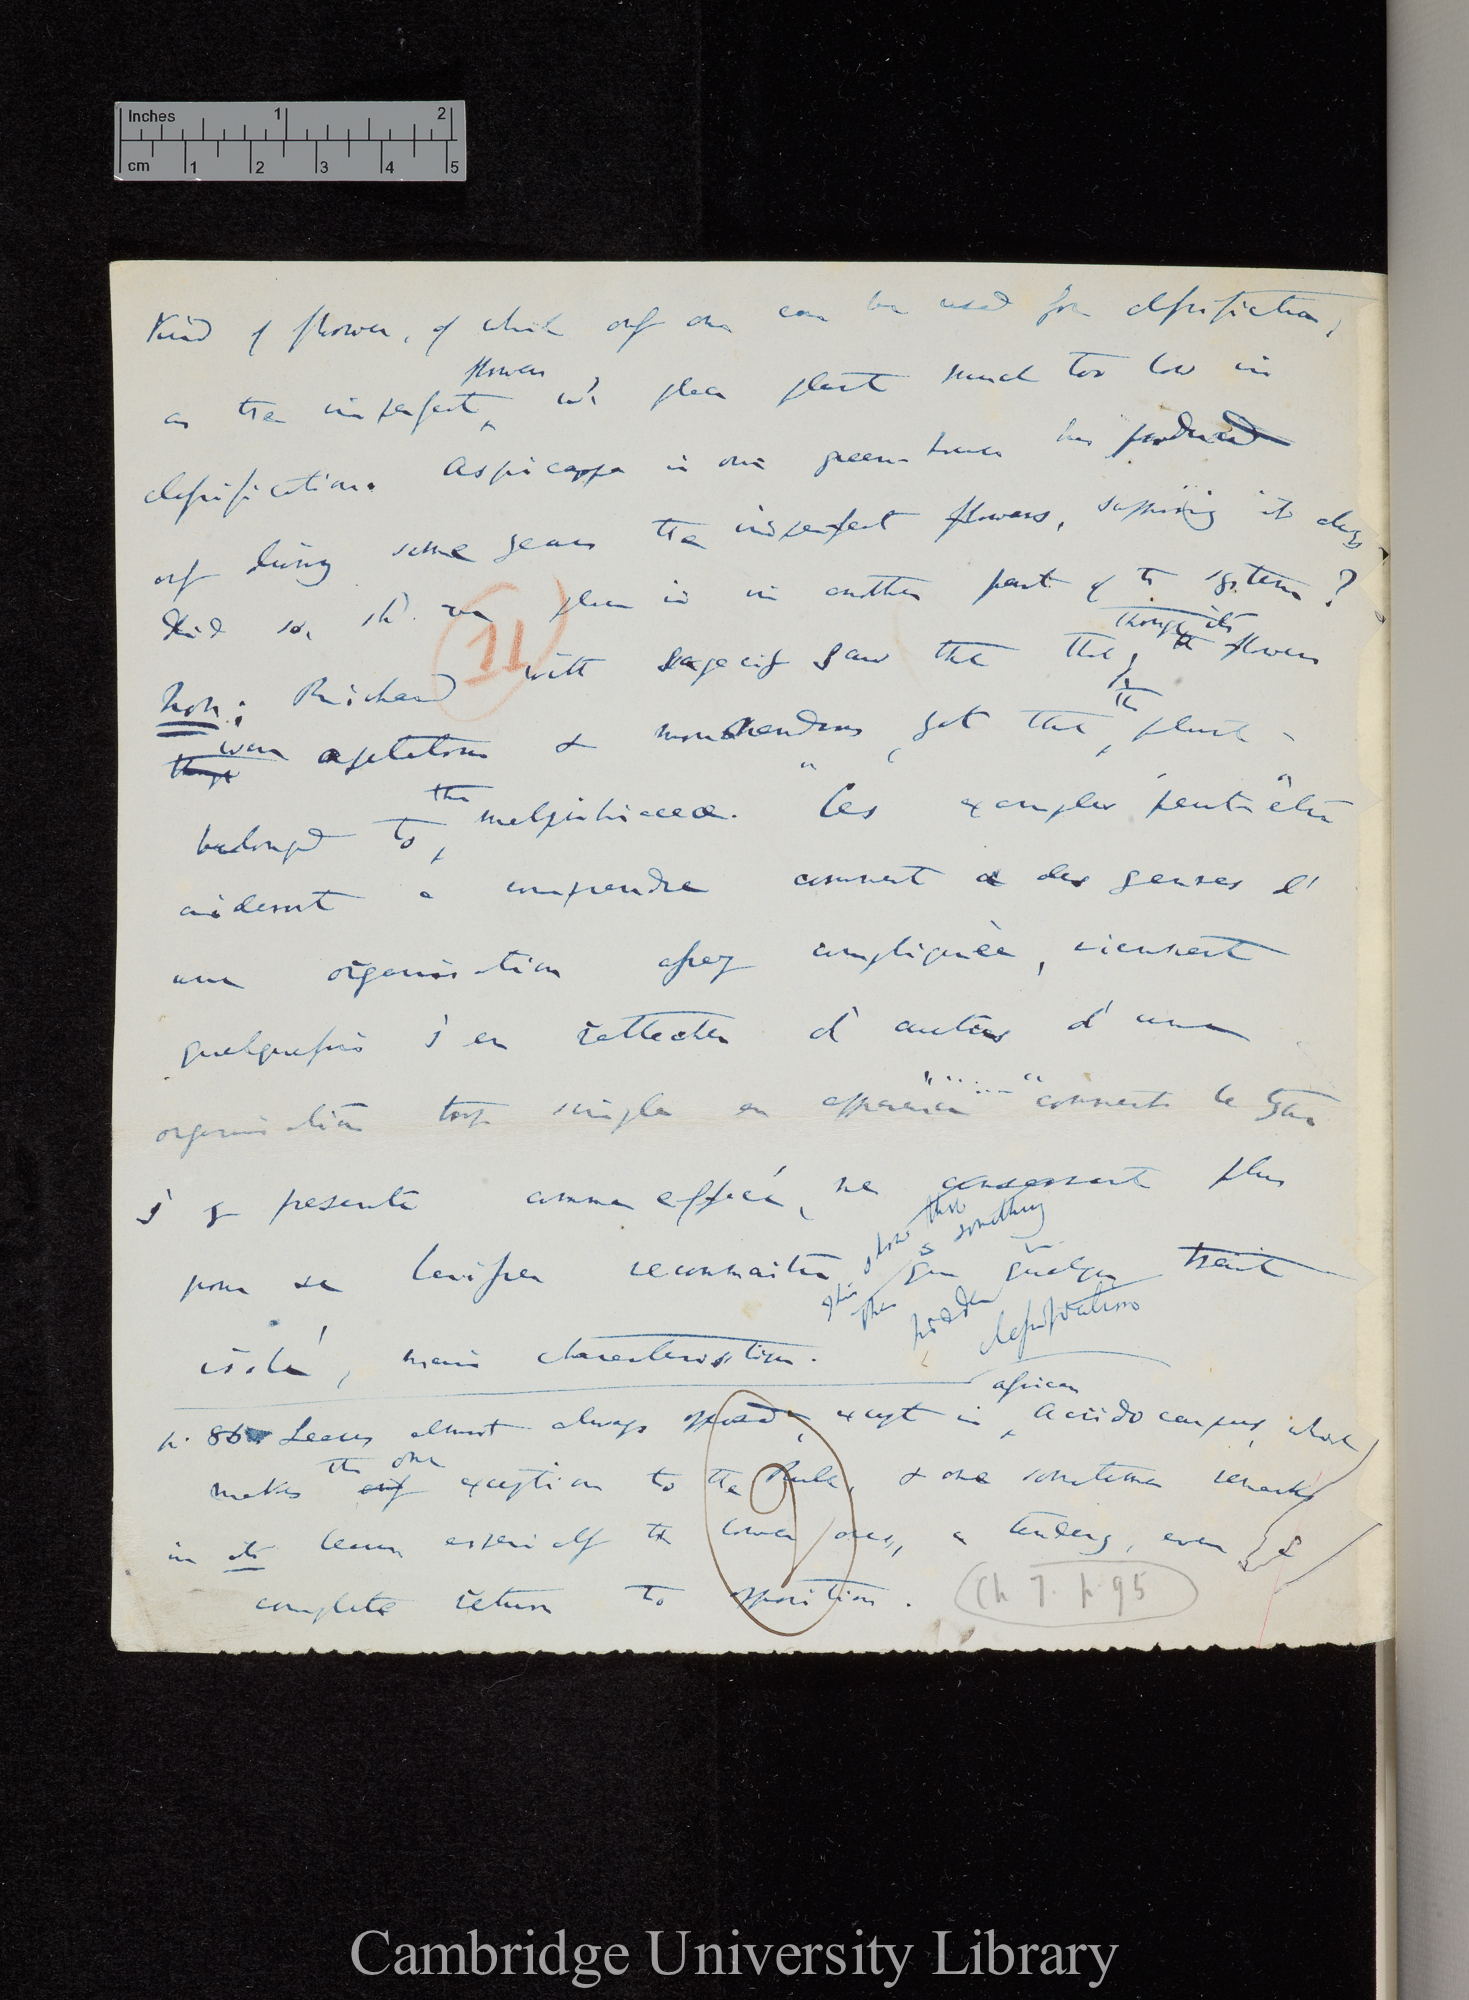 Inches 1 2
cm 1 2 3 4 5
Kind of flower, of which only one can be used for classification,
as the imperfect flowers wd place plant much too low in
classification. Aspicarpa in one green-house has produced
only during some years the imperfect flowers, supposing it always
did so, shd we place it in another part of the system?
11
Non; Richard with sagacity saw that tho, though its flowers
were apetalous & monandrous, yet that the plant
belonged to the malpighiaceæ. "Ces exemples peut être
aideront à comprendre comment à des genres d'
une organisation assez compliquée, viennent
quelquefois s'en rattacher d'autres d'une
organisation trop simple en apparence" ..... "comment le type
s'y presente comme effacé, ne conservant plus
pour se laisser reconnaitre que quelque trait
this shows that there is something hidden in classifications
isolé, mais characteristique.
p. 86 Leaves almost always opposed, except in african Acridocarpus, which
makes the one exception to the Rule, & one sometimes remarks
in its leaves especially the lower ones, a tendency, even to a
complete return to opposition.
Ch 7. p. 95
Cambridge University Library